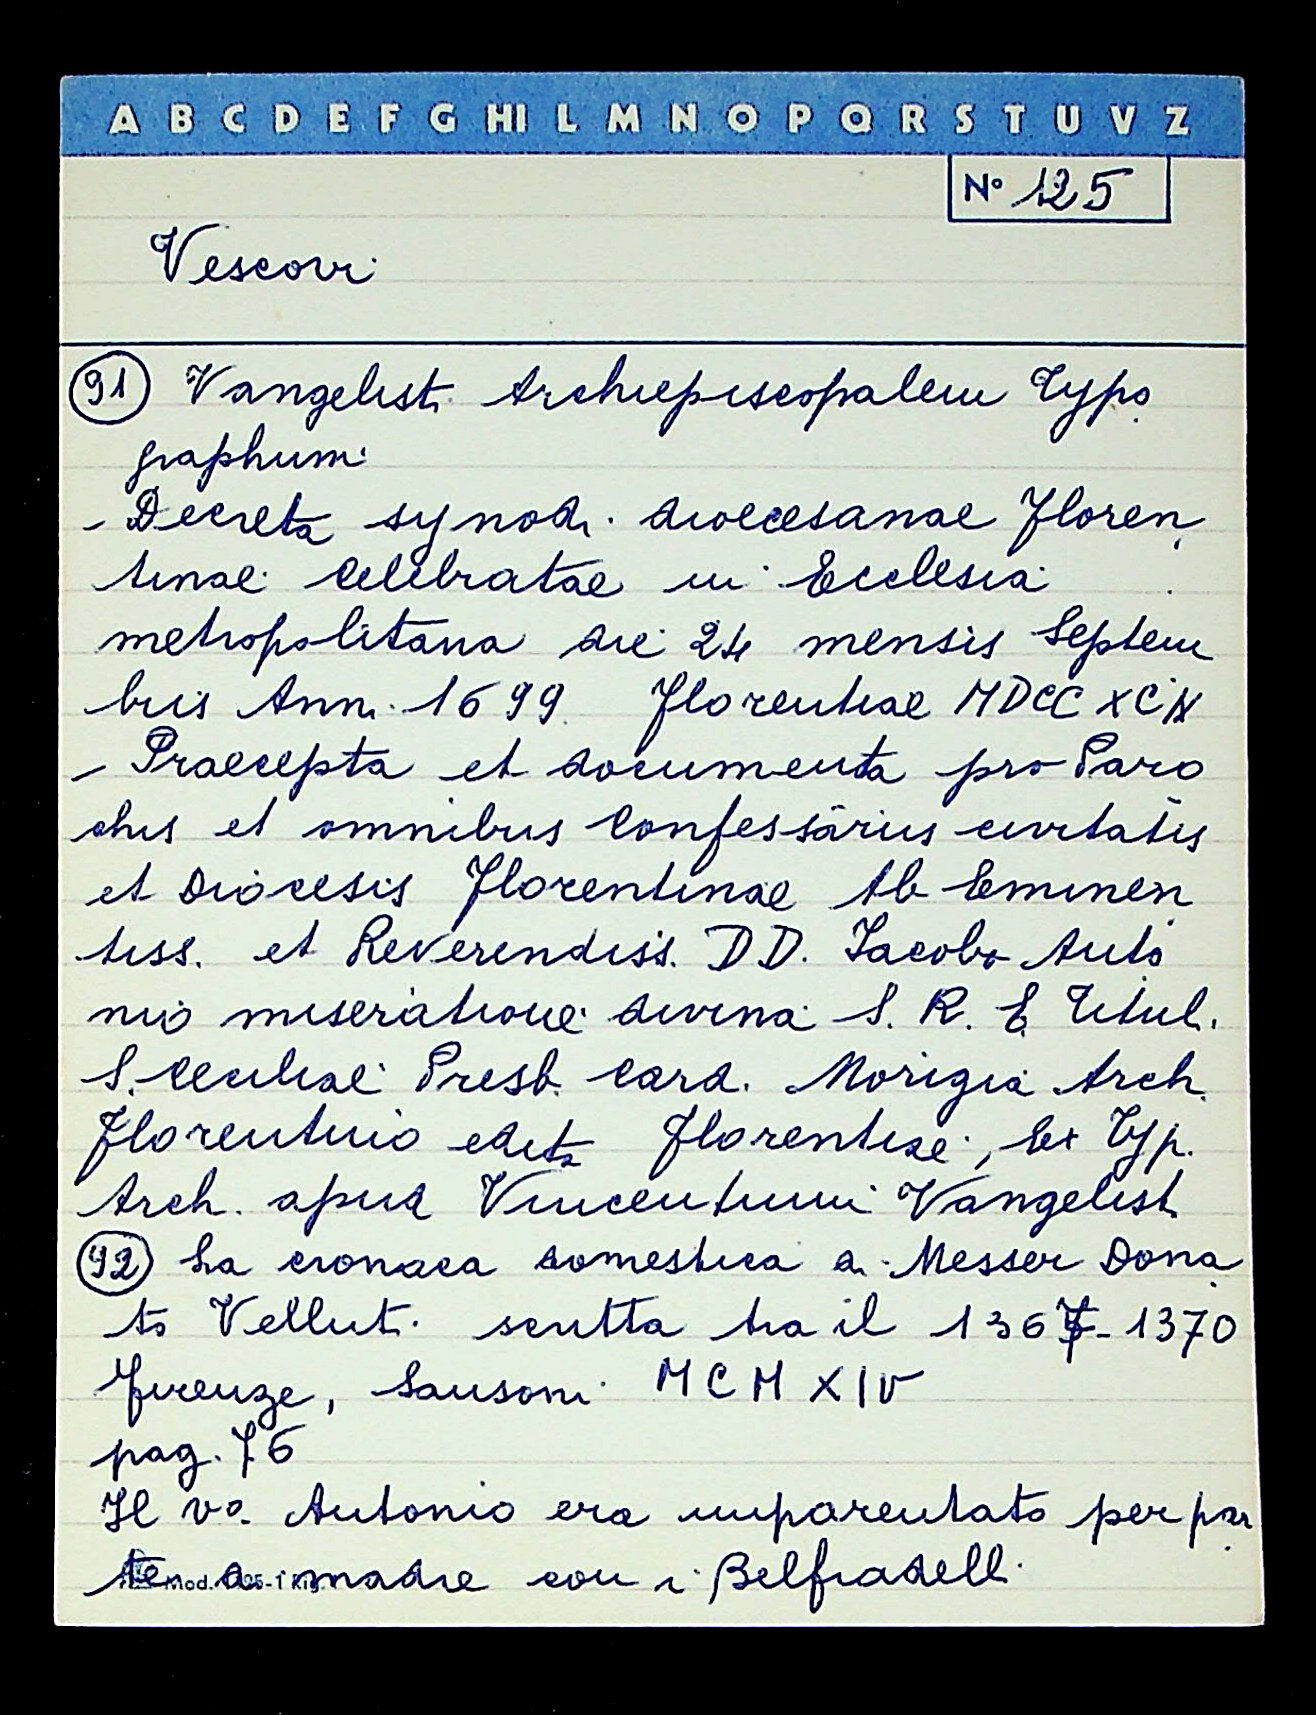 A B C D E F G HI L M N O P Q R S T U V Z
N° 125
Vescovi
91 Vangelisti Archiepiscopalem Typo
graphum
- Decreta synodi dioecesanae Floren
tinae celebratae in Ecclesia
metropolitana die 24 mensis Septem
bris Ann. 1699 Florentiae MDCC XCIX
- Praecepta et documenta pro Paro
chis et omnibus Confessariis civitatis
et Diocesis Florentinae Ab Eminen
tiss. et Reverendiss. DD. Iacobo Anto
nio miseratione divina S. R. E. Titul.
S. Ceciliae Presb. Card. Morigia Arch.
Florentino edita Florentiae, Ex Typ.
Arch. apud Vincentium Vangelisti
92 La cronaca domestica di Messer Dona
to Velluti scritta tra il 1367-1370
Firenze, Sansoni MCMXIV
pag. 76
Il vo. Antonio era imparentato per par
te di madre con i Belfradelli